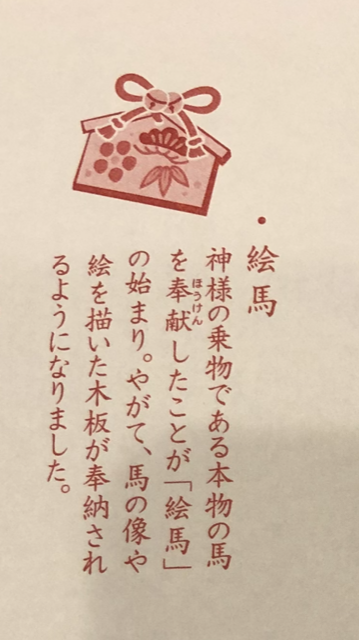 ・絵馬
神様の乗物である本物の馬
を奉献したことが「絵馬」
ほうけん
の始まり。やがて、馬の像や
絵を描いた木板が奉納され
るようになりました。